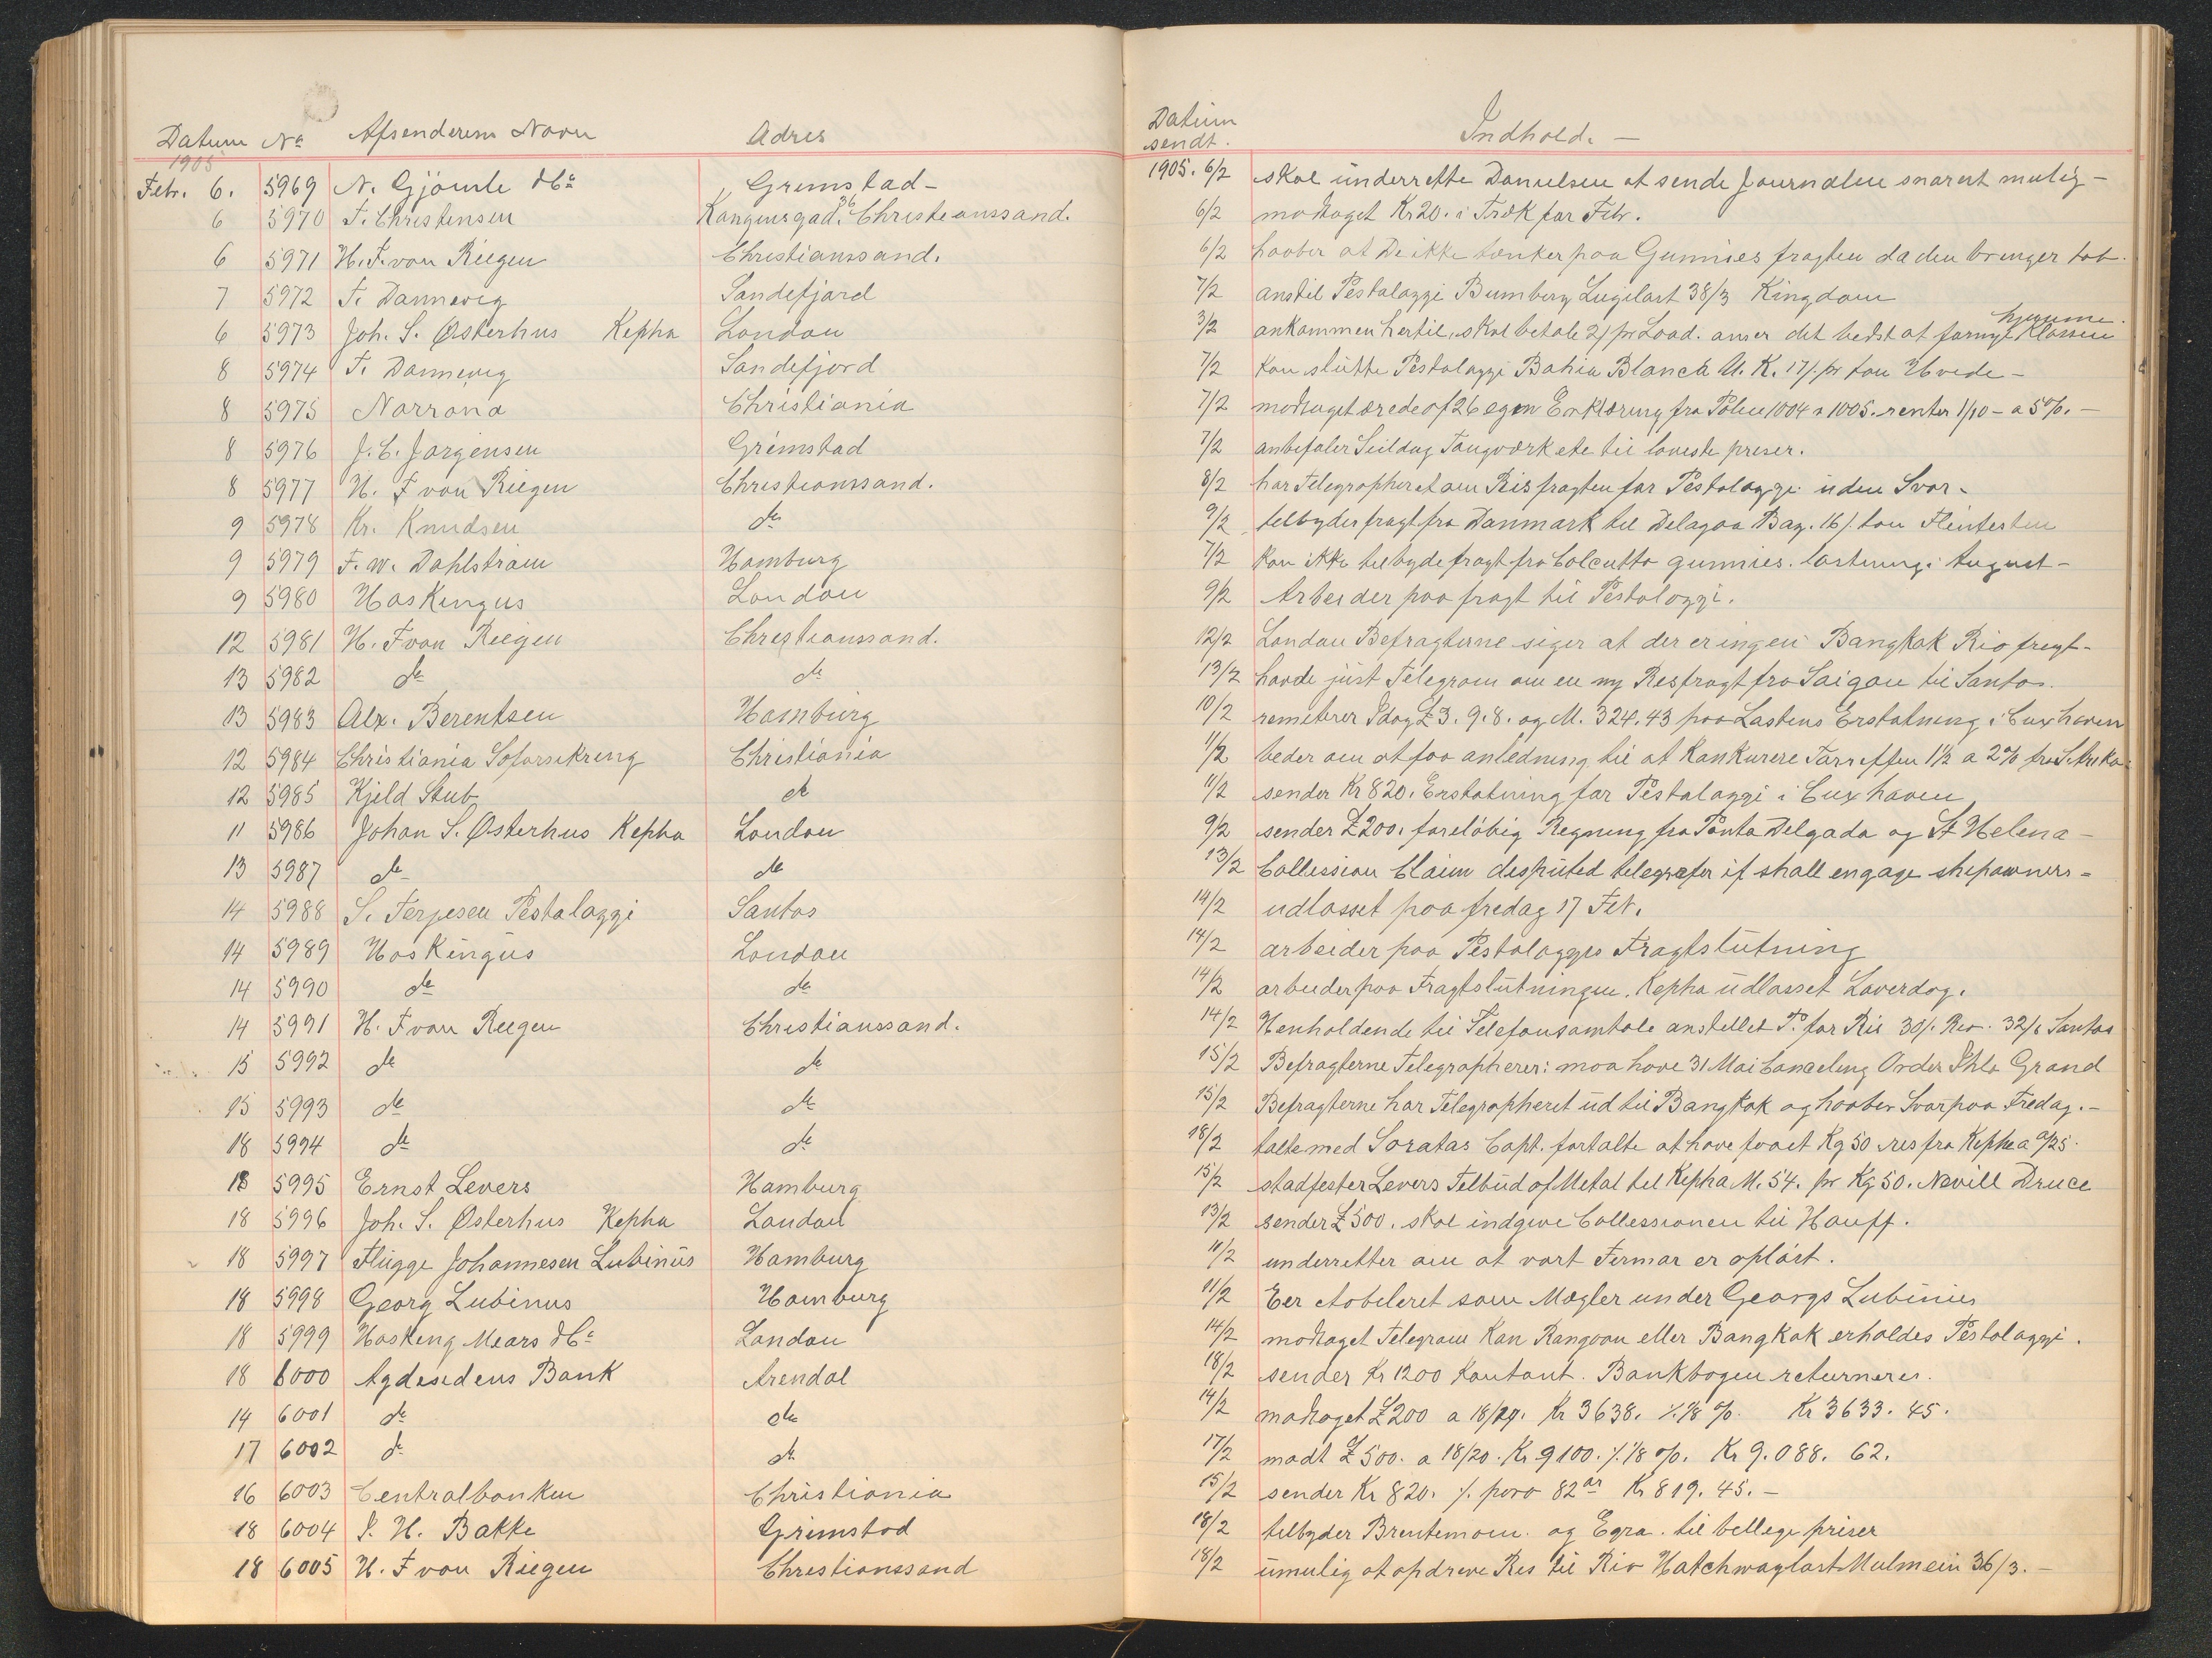 Datum No Afsenderens Navn Adres
1905
Febr. 6. 5969 N. Gjömle & Co Grimstad -
6 5970 F. Christensen Kongensgad. 36 Christianssand.
6 5971 H. F. von Riegen Christianssand.
7 5972 F. Dannevig Sandefjord
6 5973 Joh. S. Østerhus Kepha London
8 5974 F. Dannevig Sandefjord
8 5975 Norröna Christiania
8 5976 J. C. Jorgensen Grimstad
8 5977 H. F von Riegen Christianssand.
9 5978 Kr. Knudsen do
9 5979 F. W. Dahlström Hamburg
9 5980 Hoskingus London
12 5981 H. F von Riegen Christianssand.
13 5982 do do
13 5983 Alx. Berentsen Hamburg
12 5984 Christiania Soforsikring Christiania
12 5985 Kjeld Stub do
11 5986 Johan S. Østerhus Kepha London
13 5987 do do
14 5988 S. Terjesen Pestalozzi Santos
14 5989 Hoskingus London
14 5990 do do
14 5991 H. F von Riegen Christianssand.
15 5992 do do
15 5993 do do
18 5994 do do
18 5995 Ernst Levers Hamburg
18 5996 Joh. S. Østerhus Kepha London
18 5997 Flügge Johannesen Lubinus Hamburg
18 5998 Georg Lubinus Hamburg
18 5999 Hosking Mears & Co London
18 6000 Agdesidens Bank Arendal
14 6001 do do
17 6002 do do
16 6003 Centralbanken Christiania
18 6004 J. H. Bakke Grimstad
18 6005 H. F von Riegen Christianssand
Datum sendt. Indhold. -
1905. 6/2 skal underrette Danielsen at sende Journalen snarest mulig -
6/2 modtaget Kr 20. i Træk for Febr.
6/2 haaber at De ikke tænker paa Gunnies fragten da den bringer tab.
7/2 anstil Pestalozzi Bumbery Lugilast 38/3 Kingdom
hjemme.
3/2 ankommen hertil, skal betale 2/ pr Load. anser det bedst at fornye Klassen
7/2 kan slutte Pestalozzi Bahia Blanca U. K. 17/. pr ton Hvede -
7/2 modtaget ærede af 26 egen Erklæring fra Police 1004 a 1005. renter 1/10 - a 5%. -
7/2 anbefaler Seildug Tougværk etc til laveste preser.
8/2 har Telegrapheret om Risfragten for Pestalozzi uden Svar -
9/2 tilbyder fragt fra Danmark til Delagoa Bay. 16/. ton Flintesten
7/2 kan ikke tilbyde fragt fra Calcutta gunnies. lastning i August -
9/2 Arbeider paa fragt til Pestalozzi.
12/2 London Befragterne siger at der er ingen Bangkok Rio fragt -
13/2 havde just Telegram om en ny Resfragt fra Saigon til Santos.
10/2 remiterer Idag £ 3. 9. 8. og M. 324.43 paa Lastens Erstatning i Cuxhaven
11/2 beder om at faa anledning til at Konkurere Tarreffen 1 1/2 a 2% fra S. Afrika
11/2 sender Kr 820. Erstatning for Pestalozzi i Cuxhaven
9/2 sender £ 200. foreløbig Regning fra Ponta Delgada og St Helena -
13/2 Collession Claim desputed telegrafer if shall engage shipowners -
14/2 udlosset paa fredag 17 Feb.
14/2 arbeider paa Pestalozzis Fragtslutning
14/2 arbeider paa Fragtslutningen. Kepha udlosset Laverdag.
14/2 Henholdende til Telefonsamtale anstillet P. for Ris 30/. Rio. 32/6 Santos
15/2 Befragterne Telegrapherer: maa have 31 Mai Canceling Order Ihla Grand
15/2 Befragterne har Telegrapheret ud til Bangkok og haaber Svar paa Fredag. -
18/2 talte med Soratas Capt. fortalte at have faaet Kg 50 res fra Kepha a
15/2 stadfester Levers Tilbud af Metal til Kepha M. 54. pr Kg 50. Nevill Druce
13/2 sender £ 500. skal indgive Collessionen til Hauff.
11/2 underretter om at vort Firmar er opløst.
11/2 Eer etableret som Mægler under Georgs Lubinus
14/2 modtaget Telegram kan Rangoon eller Bangkok erholdes Pestalozzi.
18/2 sender Kr 1200 Kontant. Bankbogen returneres.
14/2 modtaget £ 200 a 18/19. Kr 3638. ./. 1/8 %. Kr 3633. 45.
17/2 modt £ 500. a 18/20. Kr 9100. ./. 1/8 %. Kr 9.088. 62.
15/2 sender Kr 820. ./. poro 82 ør Kr 819. 45. -
18/2 tilbyder Brentemoin. og Egra. til bellige priser
18/2 umulig at opdrive Res til Rio Hatchwaylast Mulmein 36/3. -